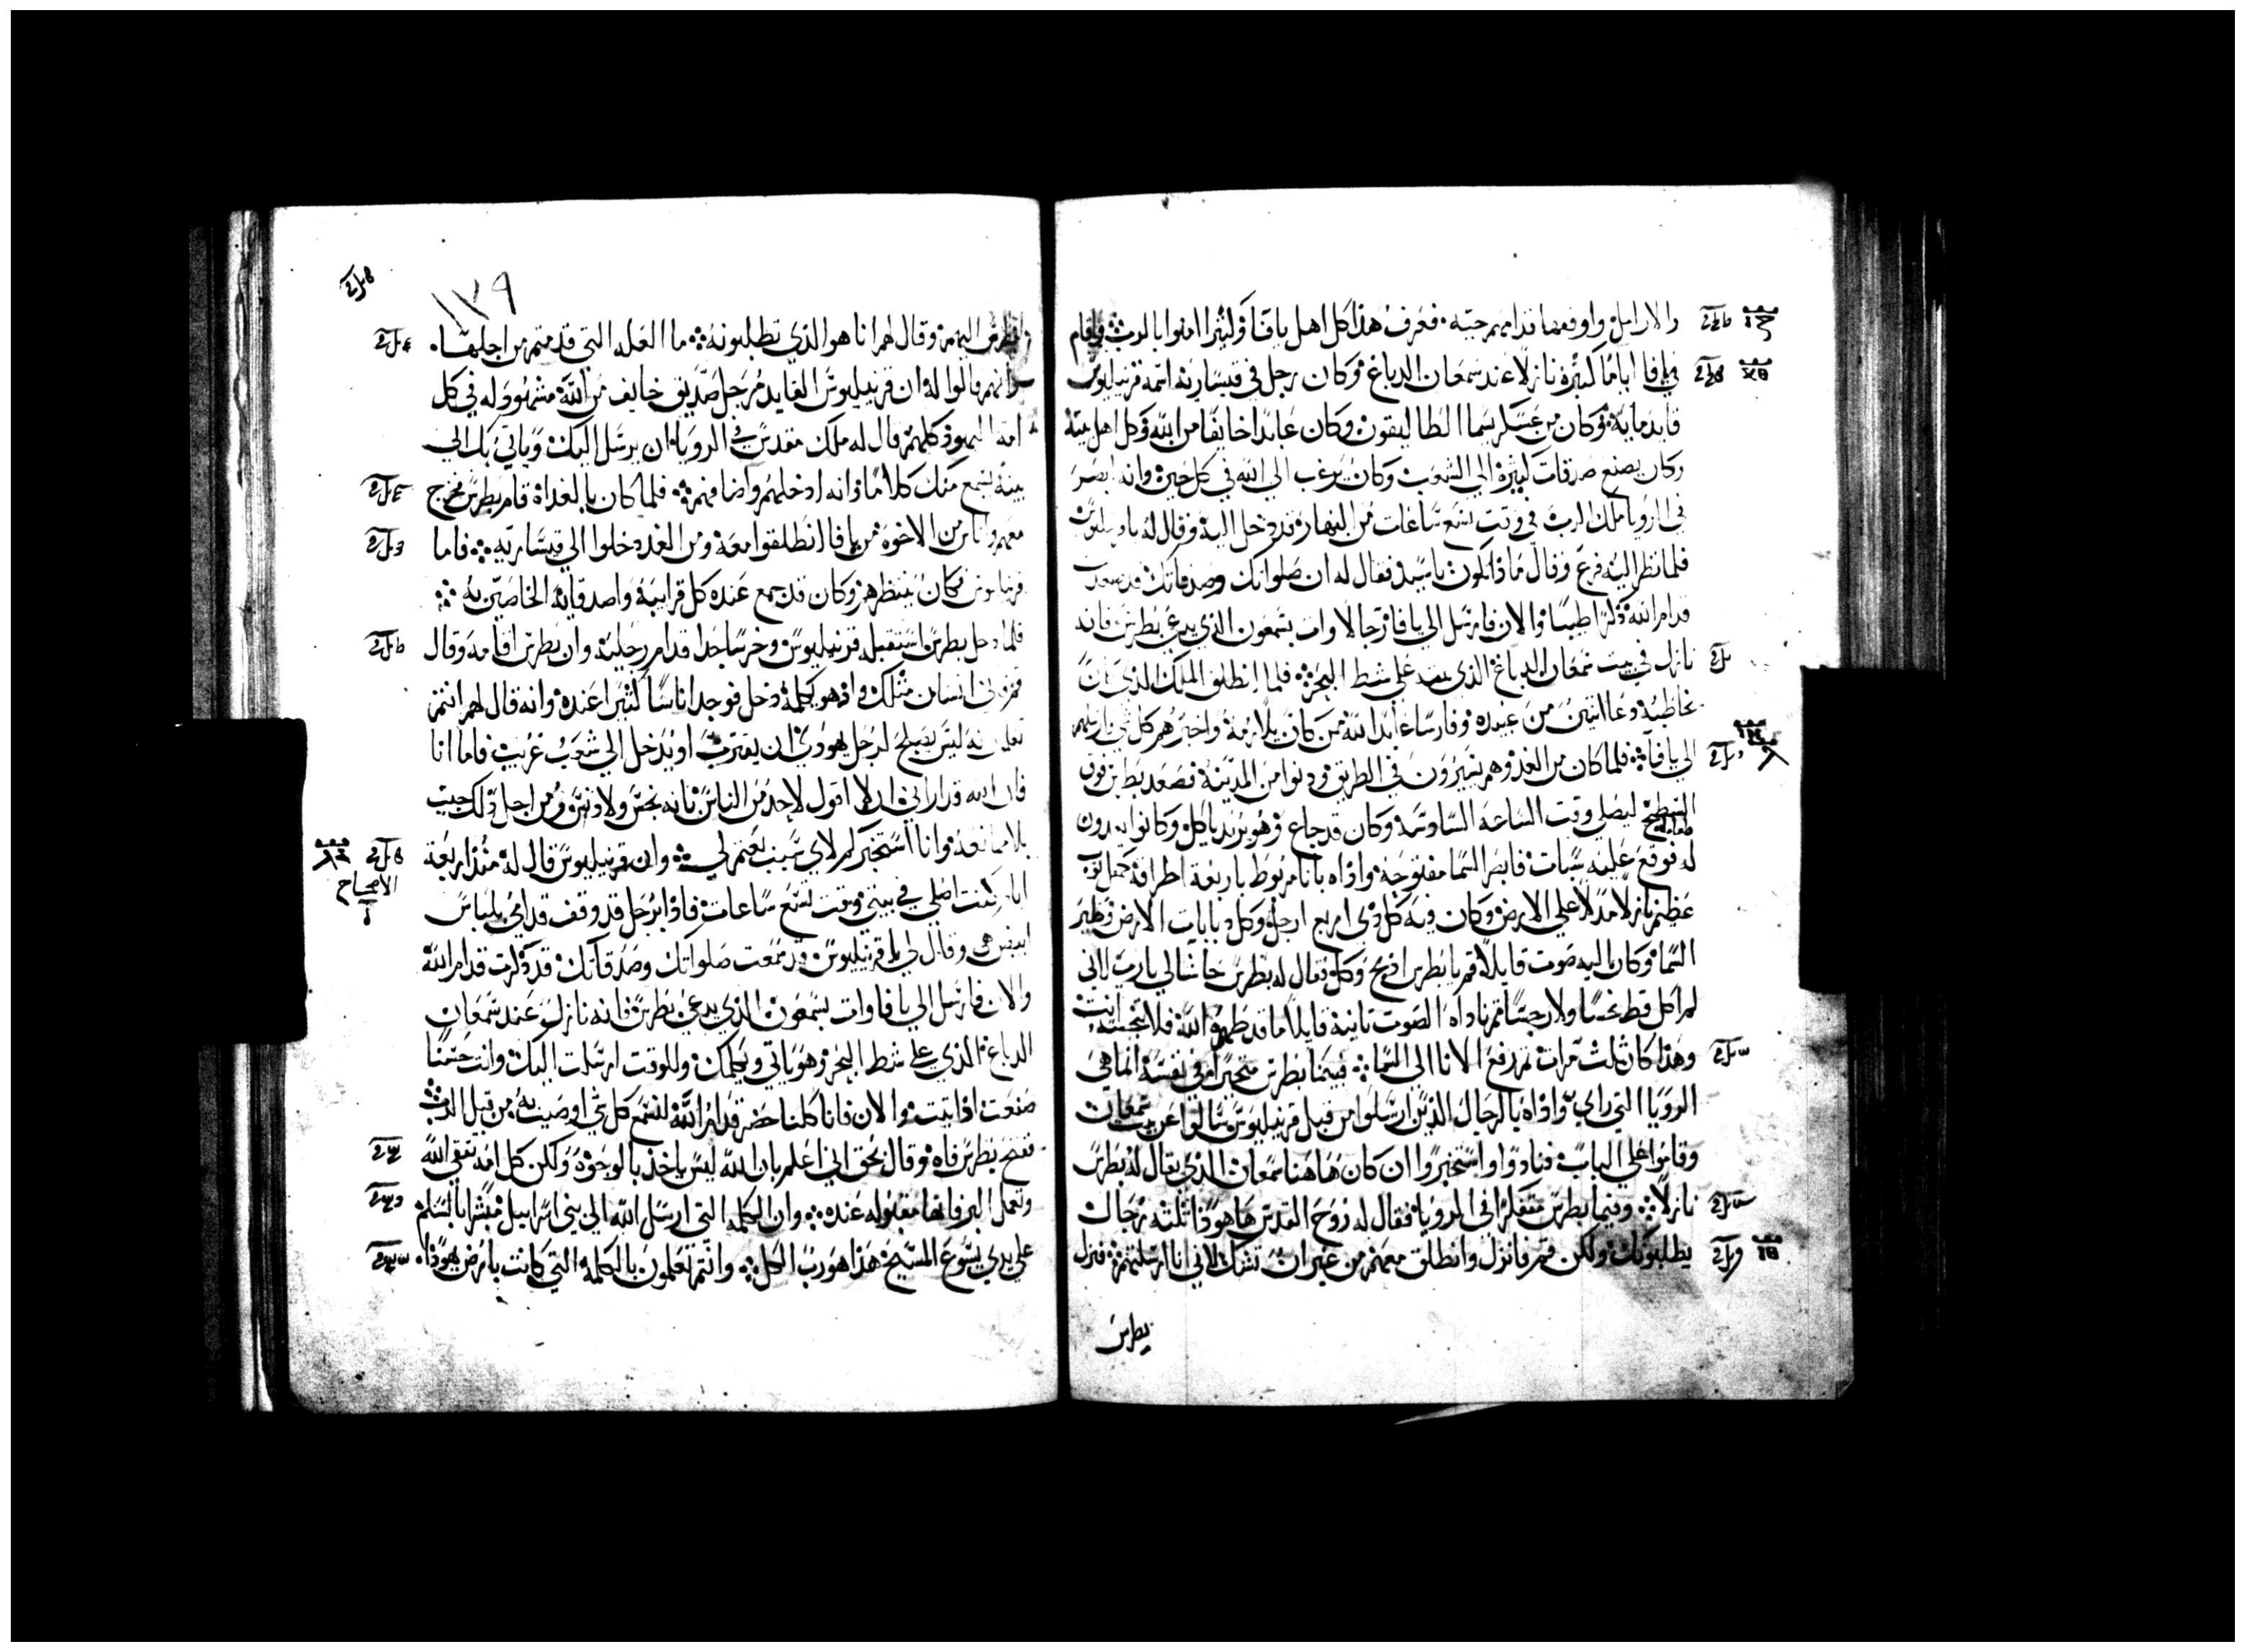 والارامل واوقفها قدامهم حيّه. فعرف هذا كل اهل يافا وكثيرا امنوا بالرب فاقام
في يافا اياما كثيره نازلا عند سمعان الدباغ وكان رجل في قيساريه اسمه قرنيليوس
قايد مايه وكان من عسكر يسما الطاليقون وكان عابدا خايفا من الله وكل اهل بيته
وكان يصنع صدقات كثيره الي الشعب وكان يرغب الي الله في كل حين وانه ابصر
في الرويا ملك الرب في وقت تسع ساعات من النهار قد دخل اليه وقال له يا قرنيليوس
فلما نظر اليه فزع وقال ماذا تكون يا سيد فقال له ان صلواتك وصدقاتك قد صعدت
قدام الله ذكرا طيبا والان فارسل الي يافا رجالا وات بشمعون الذي يدعي بطرس فانه
نازل في بيت سمعان الدباغ الذي علي شط البحر فلما انطلق الملك الذي كان
يخاطبه دعا اثنين من عبيده وفارسا عابدا لله ممن كان يلازمه واخبرهم كل شي وارسلهم
الي يافا فلما كان من الغد وهم يسيرون في الطريق ودنوا من المدينة فصعد بطرس فوق
السطح ليصلي وقت الساعه السادسه وكان قد جاع وهو يريد ياكل وكانوا يعدون
طعام
له فوقع عليه سبات فابصر السما مفتوحه واذاه بانا مربوط باربعة اطرافه كمثل ثوب
عظيم نازلا مدلا علي الارض وكان فيه كل ذي اربع ارجل وكل دبابات الارض وطير
السما وكان اليه صوت قايلا قم يا بطرس اذبح وكل فقال له بطرس حاشا لي يا رب لاني
لم اكل قط نجسا ولا رجسا ثم ناداه الصوت ثانية قايلا ما قد طهره الله فلا تنجسه انت
وهذا كان ثلث مرات ثم رفع الانا الي السما فبينما بطرس متحيرا في نفسه انما هي
الرويا التي راي واذاه بالرجال الذين ارسلوا من قبل قرنيليوس سالوا عن بيت سمعان
وقاموا علي الباب فنادوا واستخبروا ان كان هاهنا سمعان الذي يقال له بطرس
نازلا وفيما بطرس متفكرا في الرويا فقال له روح القدس هاهوذا ثلثه رجال
يطلبونك ولكن قم فانزل وانطلق معهم من غير ان تشك لاني انا ارسلتهم فنزل
بطرس
١٧٩
بطرس اليهم وقال لهم انا هو الذي تطلبونه ما العله التي قدمتم من اجلها.
وانهم قالوا له ان قرنيليوس القايد رجل صديق خايف من الله مشهود له في كل
امة اليهود كلهم قال له ملك مقدس في الرويا ان يرسل اليك وياتي بك الي
بيته ليسمع منك كلاما وانه ادخلهم واضافهم فلما كان بالغداة قام بطرس فخرج
معهم واناس من الاخوه من يافا انطلقوا معه ومن الغد دخلوا الي قيساريه فاما
قرنيليوس فكان ينتظرهم وكان قد جمع عنده كل قرابيبه واصدقايه الخاصين به
فلما دخل بطرس استقبله قرنيليوس وخر ساجدا قدام رجليه وان بطرس اقامه وقال
قم فاني انسان مثلك واذ هو يكلمه دخل فوجد اناسا كثيرا عنده وانه قال لهم انتم
تعلمون انه ليس يصلح لرجل يهودي ان يقترب او يدخل الي شعب غريب فاما انا
فان الله قد اراني ان لا اقول لاحد من الناس بانه نجس ولا دنس ومن اجل ذلك جيت
بلا ممانعه وانا استخبركم لاي سبب بعثتم لي وان قرنيليوس قال له منذ اربعة
الاصحاح
ايام كنت اصلي في بيتي وقت تسع ساعات فاذا برجل قد وقف قدامي بلباس
ابيض وقال لي يا قرنيليوس قد سمعت صلواتك وصدقاتك قد ذكرت قدام الله
والان فارسل الي يافا وات بشمعون الذي يدعي بطرس فانه نازل عند سمعان
الدباغ الذي علي شط البحر وهو ياتي ويكلمك وللوقت ارسلت اليك وانت حسنا
صنعت اذ اتيت والان فانا كلنا حضر قدام الله لنسمع كل شي اوصيت به من قبل الرب
ففتح بطرس فاه وقال بحق اني اعلم بان الله ليس ياخذ بالوجوه ولكن كل امه تتقي الله
وتعمل البر فانها مقبوله عنده وان الكلمه التي ارسل الله الي بني اسراييل مبشرا بالسلم
علي يدي يسوع المسيح هذا هو رب الكل وانتم تعلمون بالكلمه التي كانت بارض يهوذا.